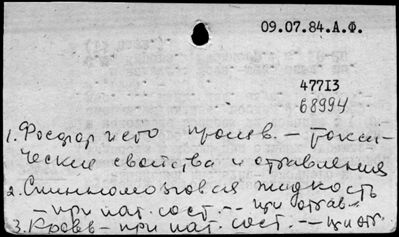 09.07.84.А.Ф.
47713
68994
1. Фосфор и его произв. – токси-
ческие свойства и отравления
2. Спинномозговая жидкость
– при пат. сост. –– при отрав.
3. Кровь – при пат. сост. ––